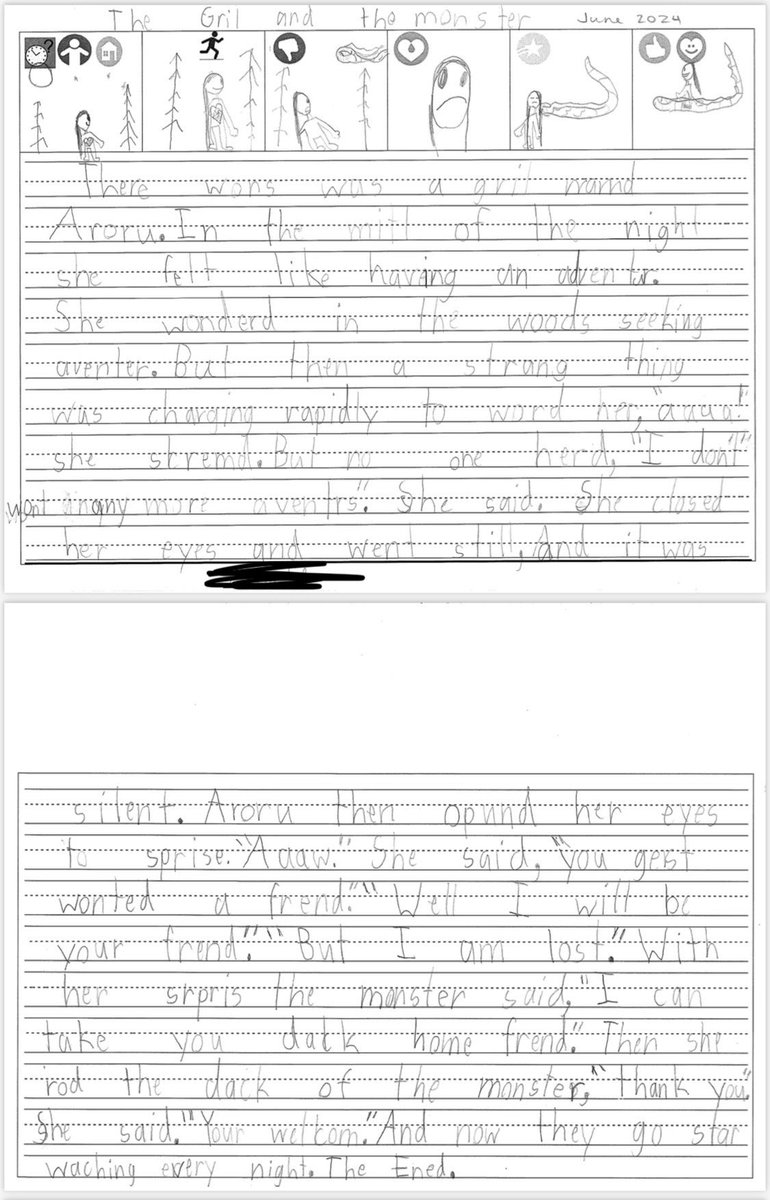 The Gril and the monster June 2024
There wons was a gril namd
Aroru. In the mitl of the night
she felt like having an adventur.
She wonderd in the woods seeking
aventer. But then a strang thing
was charging rapidly to word her, "aaaa!"
she stremd. But no one herd, "I don't"
wont anqny more aventrs". She said. She closed
her eyes and went still, And it was
silent. Aroru then opund her eyes
to sprise. "Aaaw." She said, "you gest
wonted a frend." "Well I will be
your frend." "But I am lost." With
her srpris the monster said, "I can
take you dack home frend". Then she
rod the dack of the monster, "thank you".
She said. "Your welcom." And now they go star
waching every night. The Ened.